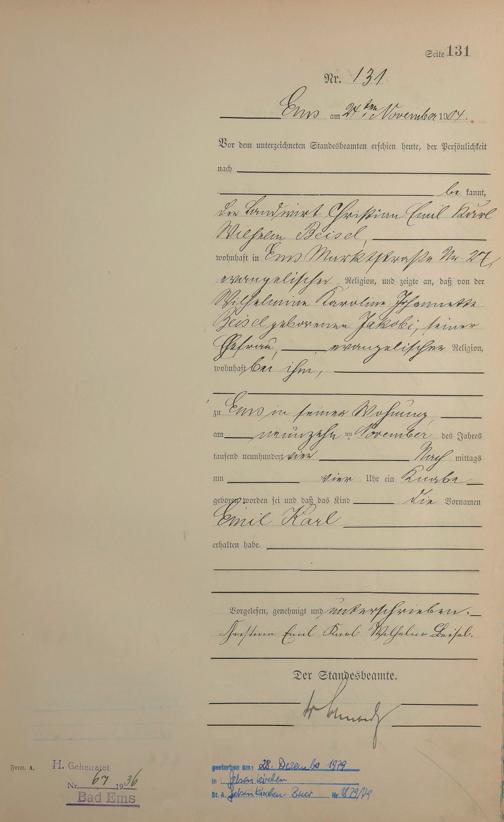 Seite 131
Nr. 131
Ems am 24ten November 1904.
Vor dem unterzeichneten Standesbeamten erschien heute, der Persönlichkeit
nach
be kannt,
der Landwirt Christian Emil Karl
Wilhelm Beisel,
wohnhaft in Ems Marktstraße Nr. 27,
evangelischer Religion, und zeigte an, daß von der
Wilhelmine Karoline Johannette
Beisel geborenen Jakobi, seiner
Ehefrau, evangelischer Religion,
wohnhaft bei ihm,
zu Ems in seiner Wohnung
am neunzehn ten November des Jahres
tausend neunhundert vier Nach mittags
um vier Uhr ein Knabe
geboren worden sei und daß das Kind die Vornamen
Emil Karl
erhalten habe.
Vorgelesen, genehmigt und unterschrieben.
Christian Emil Karl Wilhelm Beisel.
Der Standesbeamte.
Form. A.
H. Geheiratet
Nr. 67 1936
Bad Ems
gestorben am: 28. Dezember 1979
in Gelsenkirchen
St. A. Gelsenkirchen-Buer Nr.